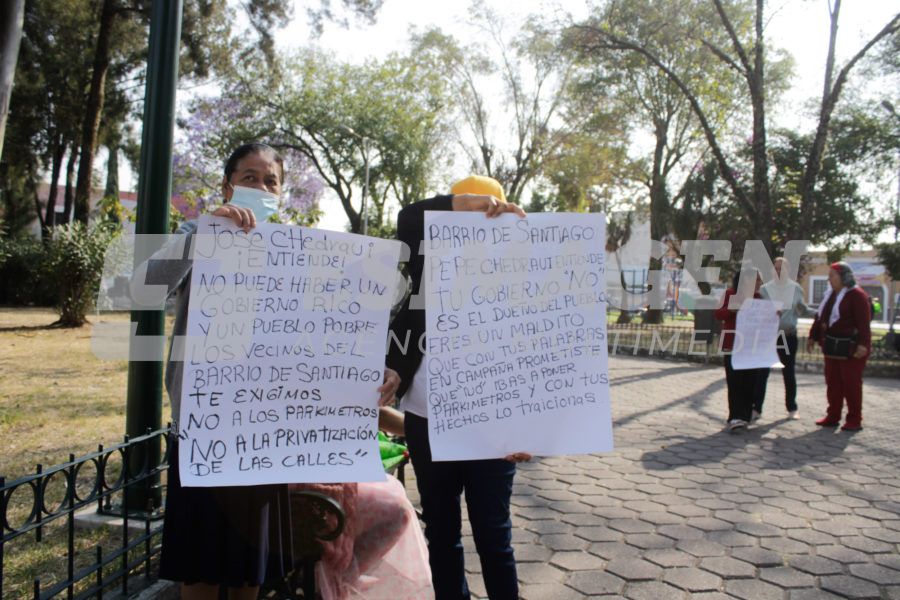 JOSE CHEDRAUI
¡ENTIENDE!
NO PUEDE HABER UN
GOBIERNO RICO
Y UN PUEBLO POBRE
LOS VECINOS DEL
BARRIO DE SANTIAGO
TE EXIGIMOS
NO A LOS PARKIMETROS
"NO A LA PRIVATIZACIÓN
DE LAS CALLES"
BARRIO DE SANTIAGO
PEPE CHEDRAUI ENTIENDE
TU GOBIERNO "NO"
ES EL DUEÑO DEL PUEBLO
ERES UN MALDITO
QUE CON TUS PALABRAS
EN CAMPAÑA PROMETISTE
QUE "NO" IBAS A PONER
PARKIMETROS Y CON TUS
HECHOS LO TRAICIONAS